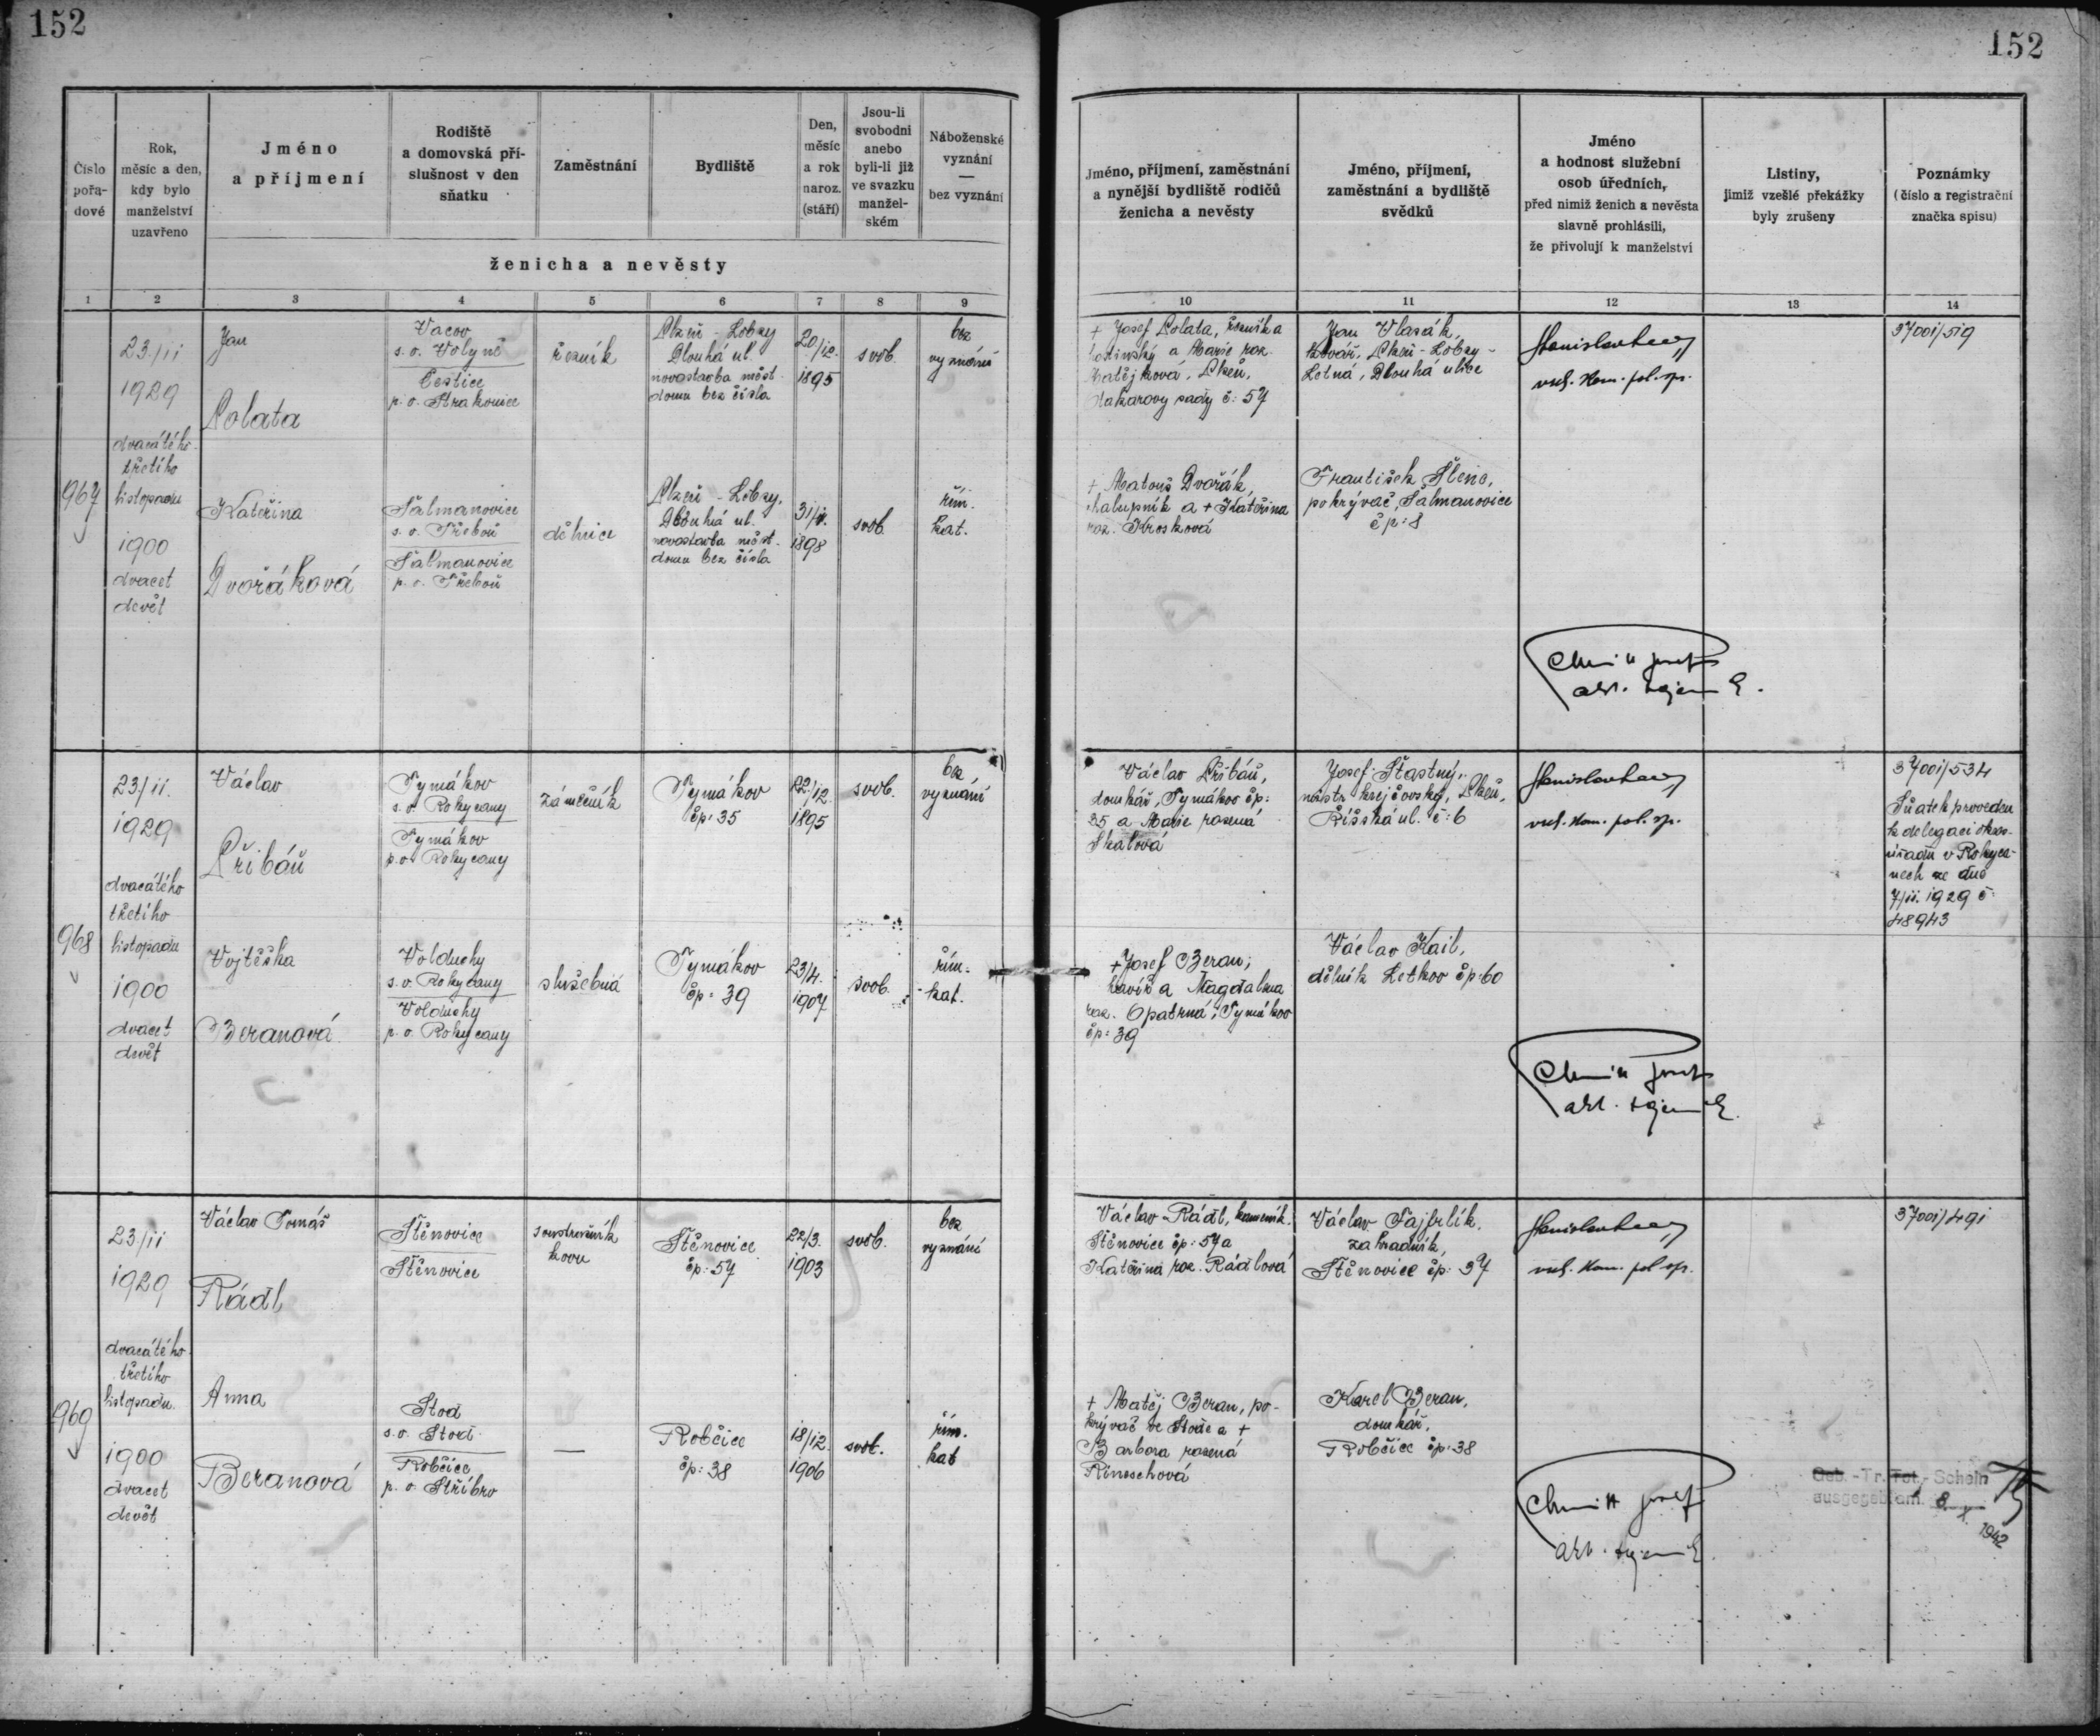 152
152
Číslo
pořa-
dové
Rok,
měsíc a den,
kdy bylo
manželství
uzavřeno
Jméno
a příjmení
Rodiště
a domovská pří-
slušnost v den
sňatku
Zaměstnání
Bydliště
Den,
měsíc
a rok
naroz.
(stáří)
Jsou-li
svobodni
anebo
byli-li již
ve svazku
manžel-
ském
Náboženské
vyznání
—
bez vyznání
ženicha a nevěsty
Jméno, příjmení, zaměstnání
a nynější bydliště rodičů
ženicha a nevěsty
Jméno, příjmení,
zaměstnání a bydliště
svědků
Jméno
a hodnost služební
osob úředních,
před nimiž ženich a nevěsta
slavně prohlásili,
že přivolují k manželství
Listiny,
jimiž vzešlé překážky
byly zrušeny
Poznámky
(číslo a registrační
značka spisu)
1 2 3 4 5 6 7 8 9 10 11 12 13 14
967
23./11
1929
dvacátého-
třetího
listopadu
1900
dvacet
devět
Jan
Polata
Vacov
s. o. Volyně
Čestice
p. o. Strakonice
řezník
Plzeň - Lobzy
Dlouhá ul.
novostavba měst.
domu bez čísla
20./12.
1895
svob.
bez
vyznání
+ Josef Polata, řezník a
hostinský a Marie roz.
Matějková, Plzeň,
sady č: 57
Jan Vlasák,
kovář, Plzeň - Lobzy -
Letná, Dlouhá ulice
vrch. kom. pol. sp.
37001/519
Kateřina
Dvořáková
Šalmanovice
s. o. Třeboň
Šalmanovice
p. o. Třeboň
dělnice
Plzeň - Lobzy,
Dlouhá ul.
novostavba měst.
domu bez čísla
31/
1898
svob.
řím.
kat.
+ Matouš Dvořák,
chalupník a + Kateřina
roz. Krosková
František
pokrývač, Šalmanovice
čp: 8
968
23./11.
1929
dvacátého
třetího
listopadu
1900
dvacet
devět
Václav
Přibáň
Tymákov
s. o. Rokycany
Tymákov
p. o. Rokycany
zámečník
Tymákov
čp: 35
22./12.
1895
svob.
bez
vyznání
Václav Přibáň,
domkář, Tymákov čp:
35 a Marie rozená
Skalová
Josef Šťastný,
mistr krejčovský, Plzeň,
Říšská ul. č: 6
vrch. kom. pol. sp.
37001/534
Sňatek proveden
k delegaci okres.
úřadu v Rokyca-
nech ze dne
7/11. 1929 č:
48943
Vojtěška
Beranová
Volduchy
s. o. Rokycany
Volduchy
p. o. Rokycany
služebná
Tymákov
čp: 39
23/4.
1907
svob.
řím.
kat.
+ Josef Beran,
havíř a Magdalena
roz. Opatrná, Tymákov
čp: 39
Václav Kail,
dělník Letkov čp: 60
969
23/11
1929
dvacátého
třetího
listopadu.
1900
dvacet
devět
Václav Tomáš
Rádl
Štěnovice
Štěnovice
soustružník
kovu
Štěnovice
čp: 57
22/3.
1903
svob.
bez
vyznání
Václav Rádl, kameník,
Štěnovice čp: 57 a
Kateřina roz. Rádlová
Václav Fajfrlík,
zahradník,
Štěnovice čp: 37
vrch. kom. pol. sp.
37001/491
Anna
Beranová
Stod
s. o. Stod
Robčice
p. o. Stříbro
—
Robčice
čp: 38
18/12.
1906
svob.
řím.
kat
+ Matěj Beran, po-
krývač ve Stodě a +
Barbora rozená
Rineschová
Karel Beran,
domkář,
Robčice čp: 38
Geb.-Tr.-Tot.-Schein
ausgegeb. am. 8. X. 1942